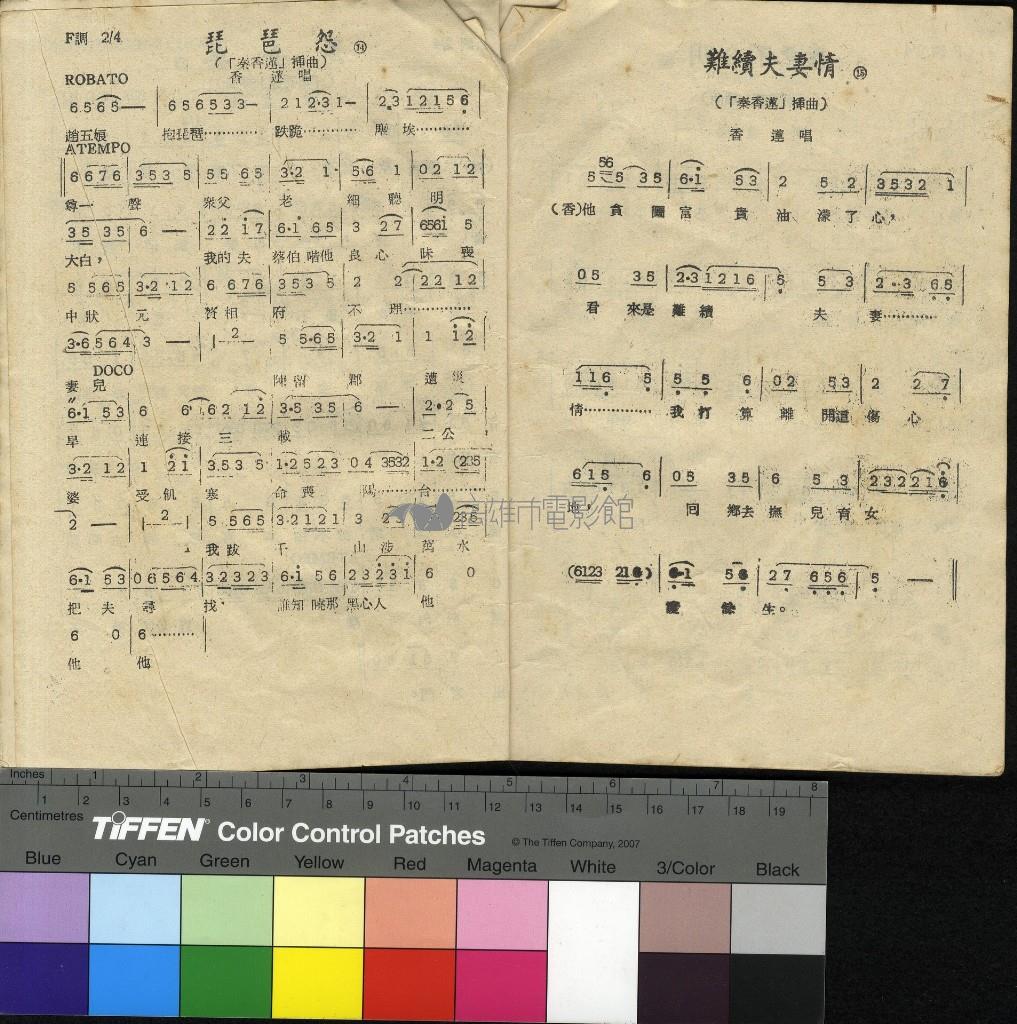 F調 2/4
琵琶怨 ⑭
(「秦香蓮」揷曲)
香蓮唱
ROBATO
6.5 6 5 — | 6 5 6 5 3 3 — | 2 1 2·3 1 — | 2·3 1 2 1 5 6
趙五娘 抱琵琶············ 跌跪······ 塵埃············
ATEMPO
6 6 7 6 | 3 5 3 5 | 5 5 6 5 | 3·2 1· | 5·6 1 | 0 2 1 2
尊一聲 衆父老細聽明
3 5 3 5 | 6 — | 2 2 i 7 | 6·i 6 5 | 3 2 7 | 6 5 6 i 5
大白, 我的夫蔡伯喈他良心昧喪
5 5 6 5 | 3·2 ·1 2 | 6 6 7 6 | 3 5 3 5 | 2 2 | 2 2 1 2
中狀元贅相府不理············
3·6 5 6 4 | 3 — | 1—2— | 5 5·6 5 | 3·2 1 | 1 i 2
妻兒 陳留郡遭災
DOCO
6·1 5 3 | 6 6· | 6 2 1 2 | 3·5 3 5 | 6 — | 2·2 5
旱連接三載 二公
3·2 1 2 | 1 2 i | 3.5 3 5 | 1·2 5 2 3 | 0 4 3532 | 1·2 (235
婆受飢寒命喪陽············台
2 — | —2— | 5 5 6 5 | 3·2 1 2 1 | 3 2
我跋千山涉萬水
6·1 5 3 | 0 6 5 6 4 | 3 2 3 2 3 | 6·i 5 6 | 2 3 2 3 i | 6 0
把夫尋找 誰知曉那黑心人他
6 0 | 6 ·········
他 他
難續夫妻情 ⑮
(「秦香蓮」揷曲)
香蓮唱
56
5 5 3 5 | 6·i 5 3 | 2 5 2 | 3 5 3 2 1
(香)他貪圖富貴油濛了心,
0 5 3 5 | 2·3 1 2 1 6 | 5 5 3 | 2··3 6 5
看來是難續夫妻············
1 1 6 5 | 5 5 6 | 0 2 5 3 | 2 2 7
情··············我打算離開這傷心
6 1 5 6 | 0 5 3 5 | 6 5 3 | 2 3 2 2 1 6
地, 回鄉去撫兒育女
(6123 216) | 6·1 5 6 | 2 7 6 5 6 | 5 —
餘生。
高雄市電影館
Inches 1 2 3 4 5 6 7 8
Centimetres 1 2 3 4 5 6 7 8 9 10 11 12 13 14 15 16 17 18 19
TIFFEN® Color Control Patches © The Tiffen Company, 2007
Blue Cyan Green Yellow Red Magenta White 3/Color Black